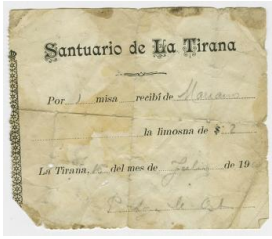 Santuario de La Tirana
Por 1 misa recibí de Mariano
la limosna de $ 2
La Tirana, 15 del mes de Julio de 19